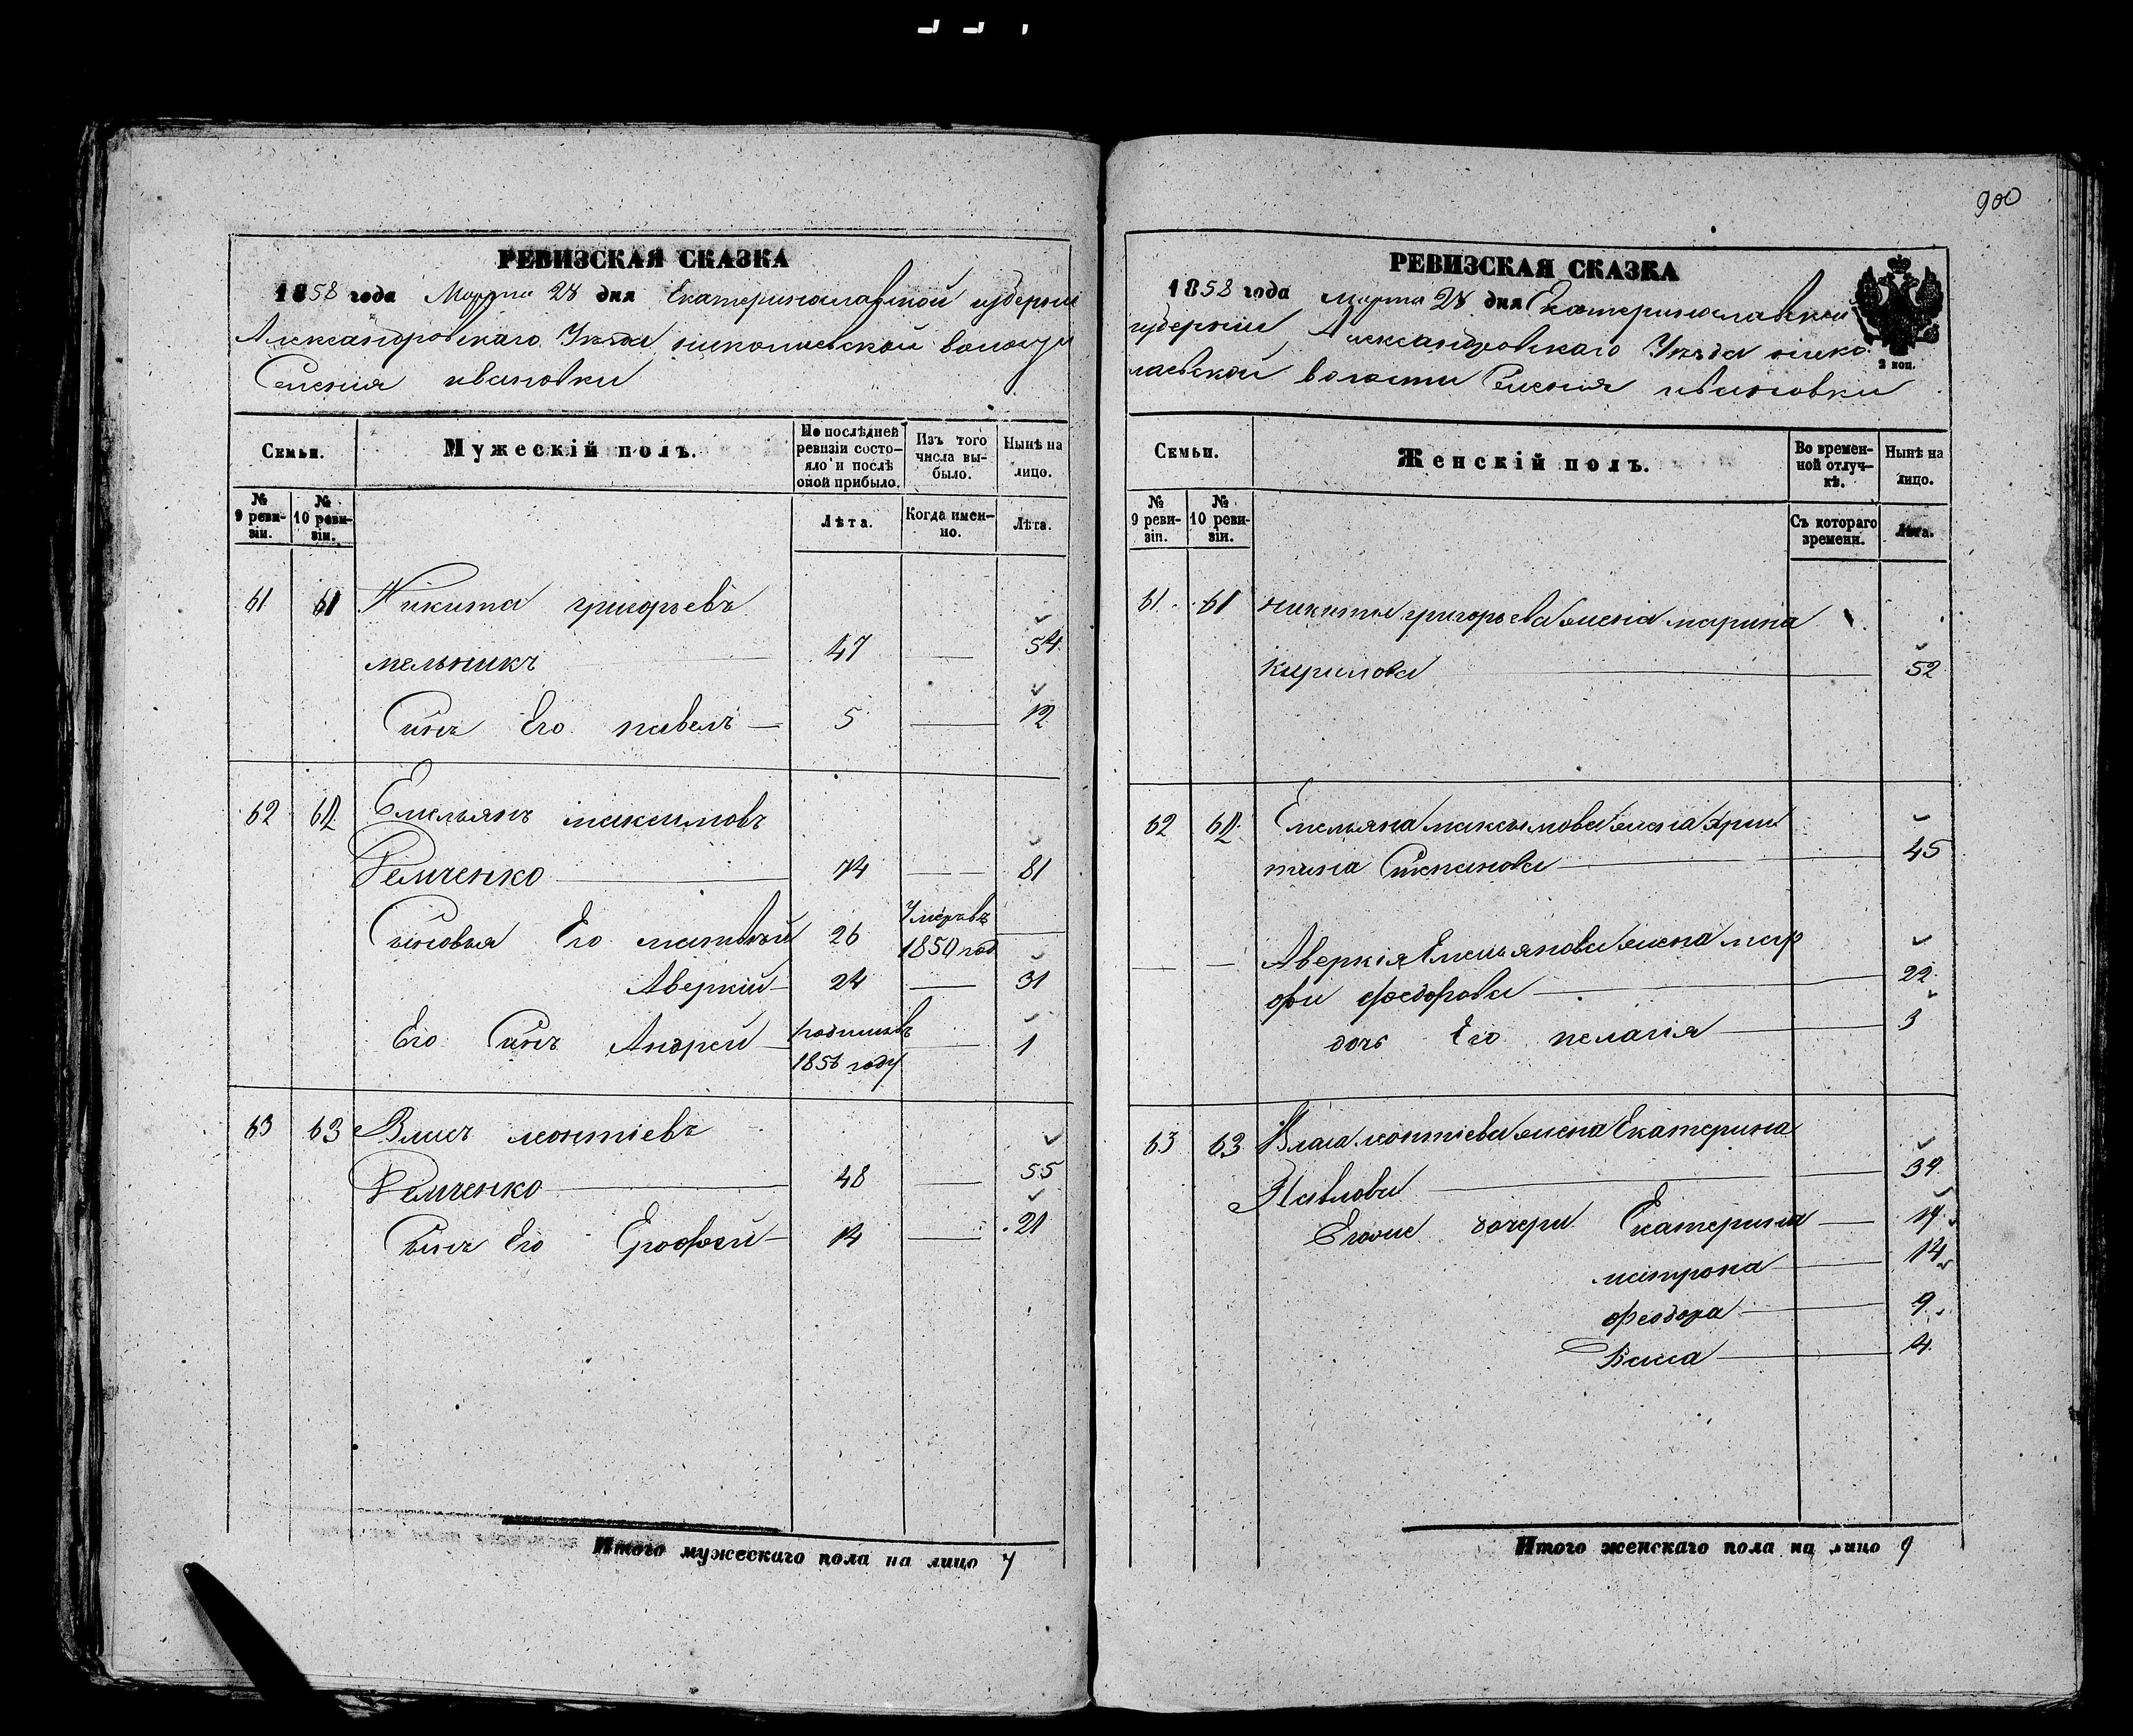 900
РЕВИЗСКАЯ СКАЗКА
1858 года Марта 28 дня Екатеринославской губернии
Александровскаго Уезда николаевской волости
Селения ивановки
Семьи.
Мужескій полъ.
По послѣдней ревизіи состо-
яло и послѣ
оной прибыло.
Изъ того
числа вы-
было.
Нынѣ на
лицо.
№
9 реви-
зіи.
№
10 реви-
зіи.
Лѣта.
Когда имен-
но.
Лѣта.
61 61 Никита григорьевъ
мельникъ 47 54
Сынъ Его павелъ 5 12
62 62 Емельянъ максимовъ
Демченко 74 81
Сыновья Его матвѣй 26 Умеръ въ 1850 год
Аверкій 24 31
Его Сынъ Андрей 1
63 63 Власъ леонтіевъ
Демченко 48 55
Сынъ Его Ерофей 14 21
Итого мужескаго пола на лицо 7
РЕВИЗСКАЯ СКАЗКА
1858 года Марта 28 дня Екатеринославской
губернии Александровскаго Уезда нико
лаевской волости Селения ивановки
2 коп.
Семьи.
Женскій полъ.
Во времен-
ной отлуч-
кѣ.
Нынѣ на
лицо.
№
9 реви-
зіи.
№
10 реви-
зіи.
Съ котораго
времени.
Лѣта.
61 61 никиты григорьева жена марина
Кирилова 52
62 62 Емельяна максимова жена Хрис
тина Степанова 45
Аверкія Емельянова жена мар
фа федорова 22
дочь Его пелагія 3
63 63 Власа леонтіева жена Екатерина
Павлова 39
Егоже дочери Екатерина 17
матрона 14
феодора 9
Васса 4
Итого женскаго пола на лицо 9